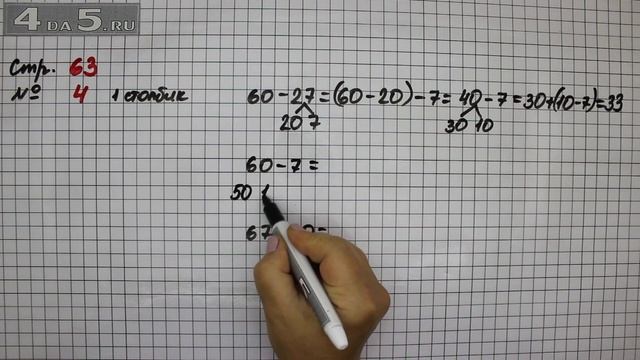 4 DA 5.RU
Стр. 63
№ 4 1 столбик
60-27=(60-20)-7=40-7=30+(10-7)=33
20 7 30 10
60-7=
50 1
67